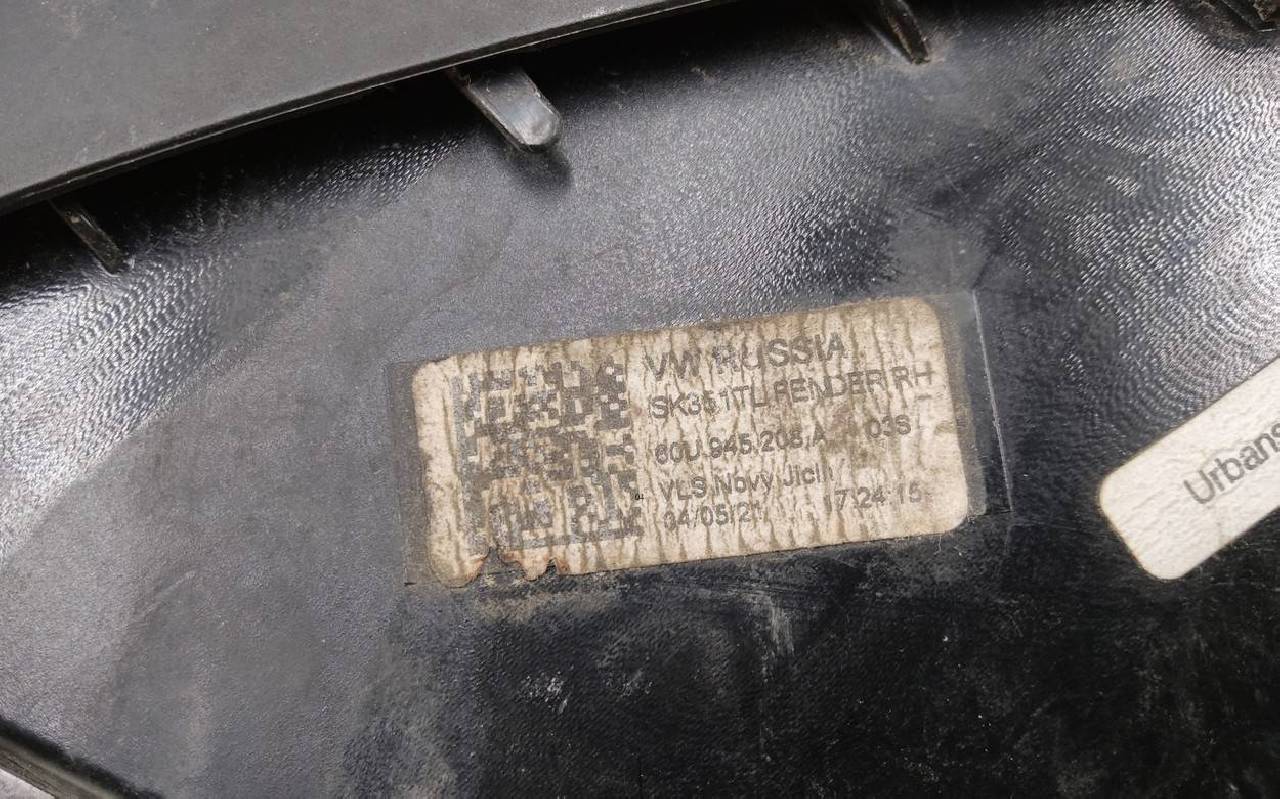 VW RUSSIA
SK351TL FENDER RH
60U.945.208.A 03S
VLS Novy Jicin
04/05/21 17:24:15
Urbans